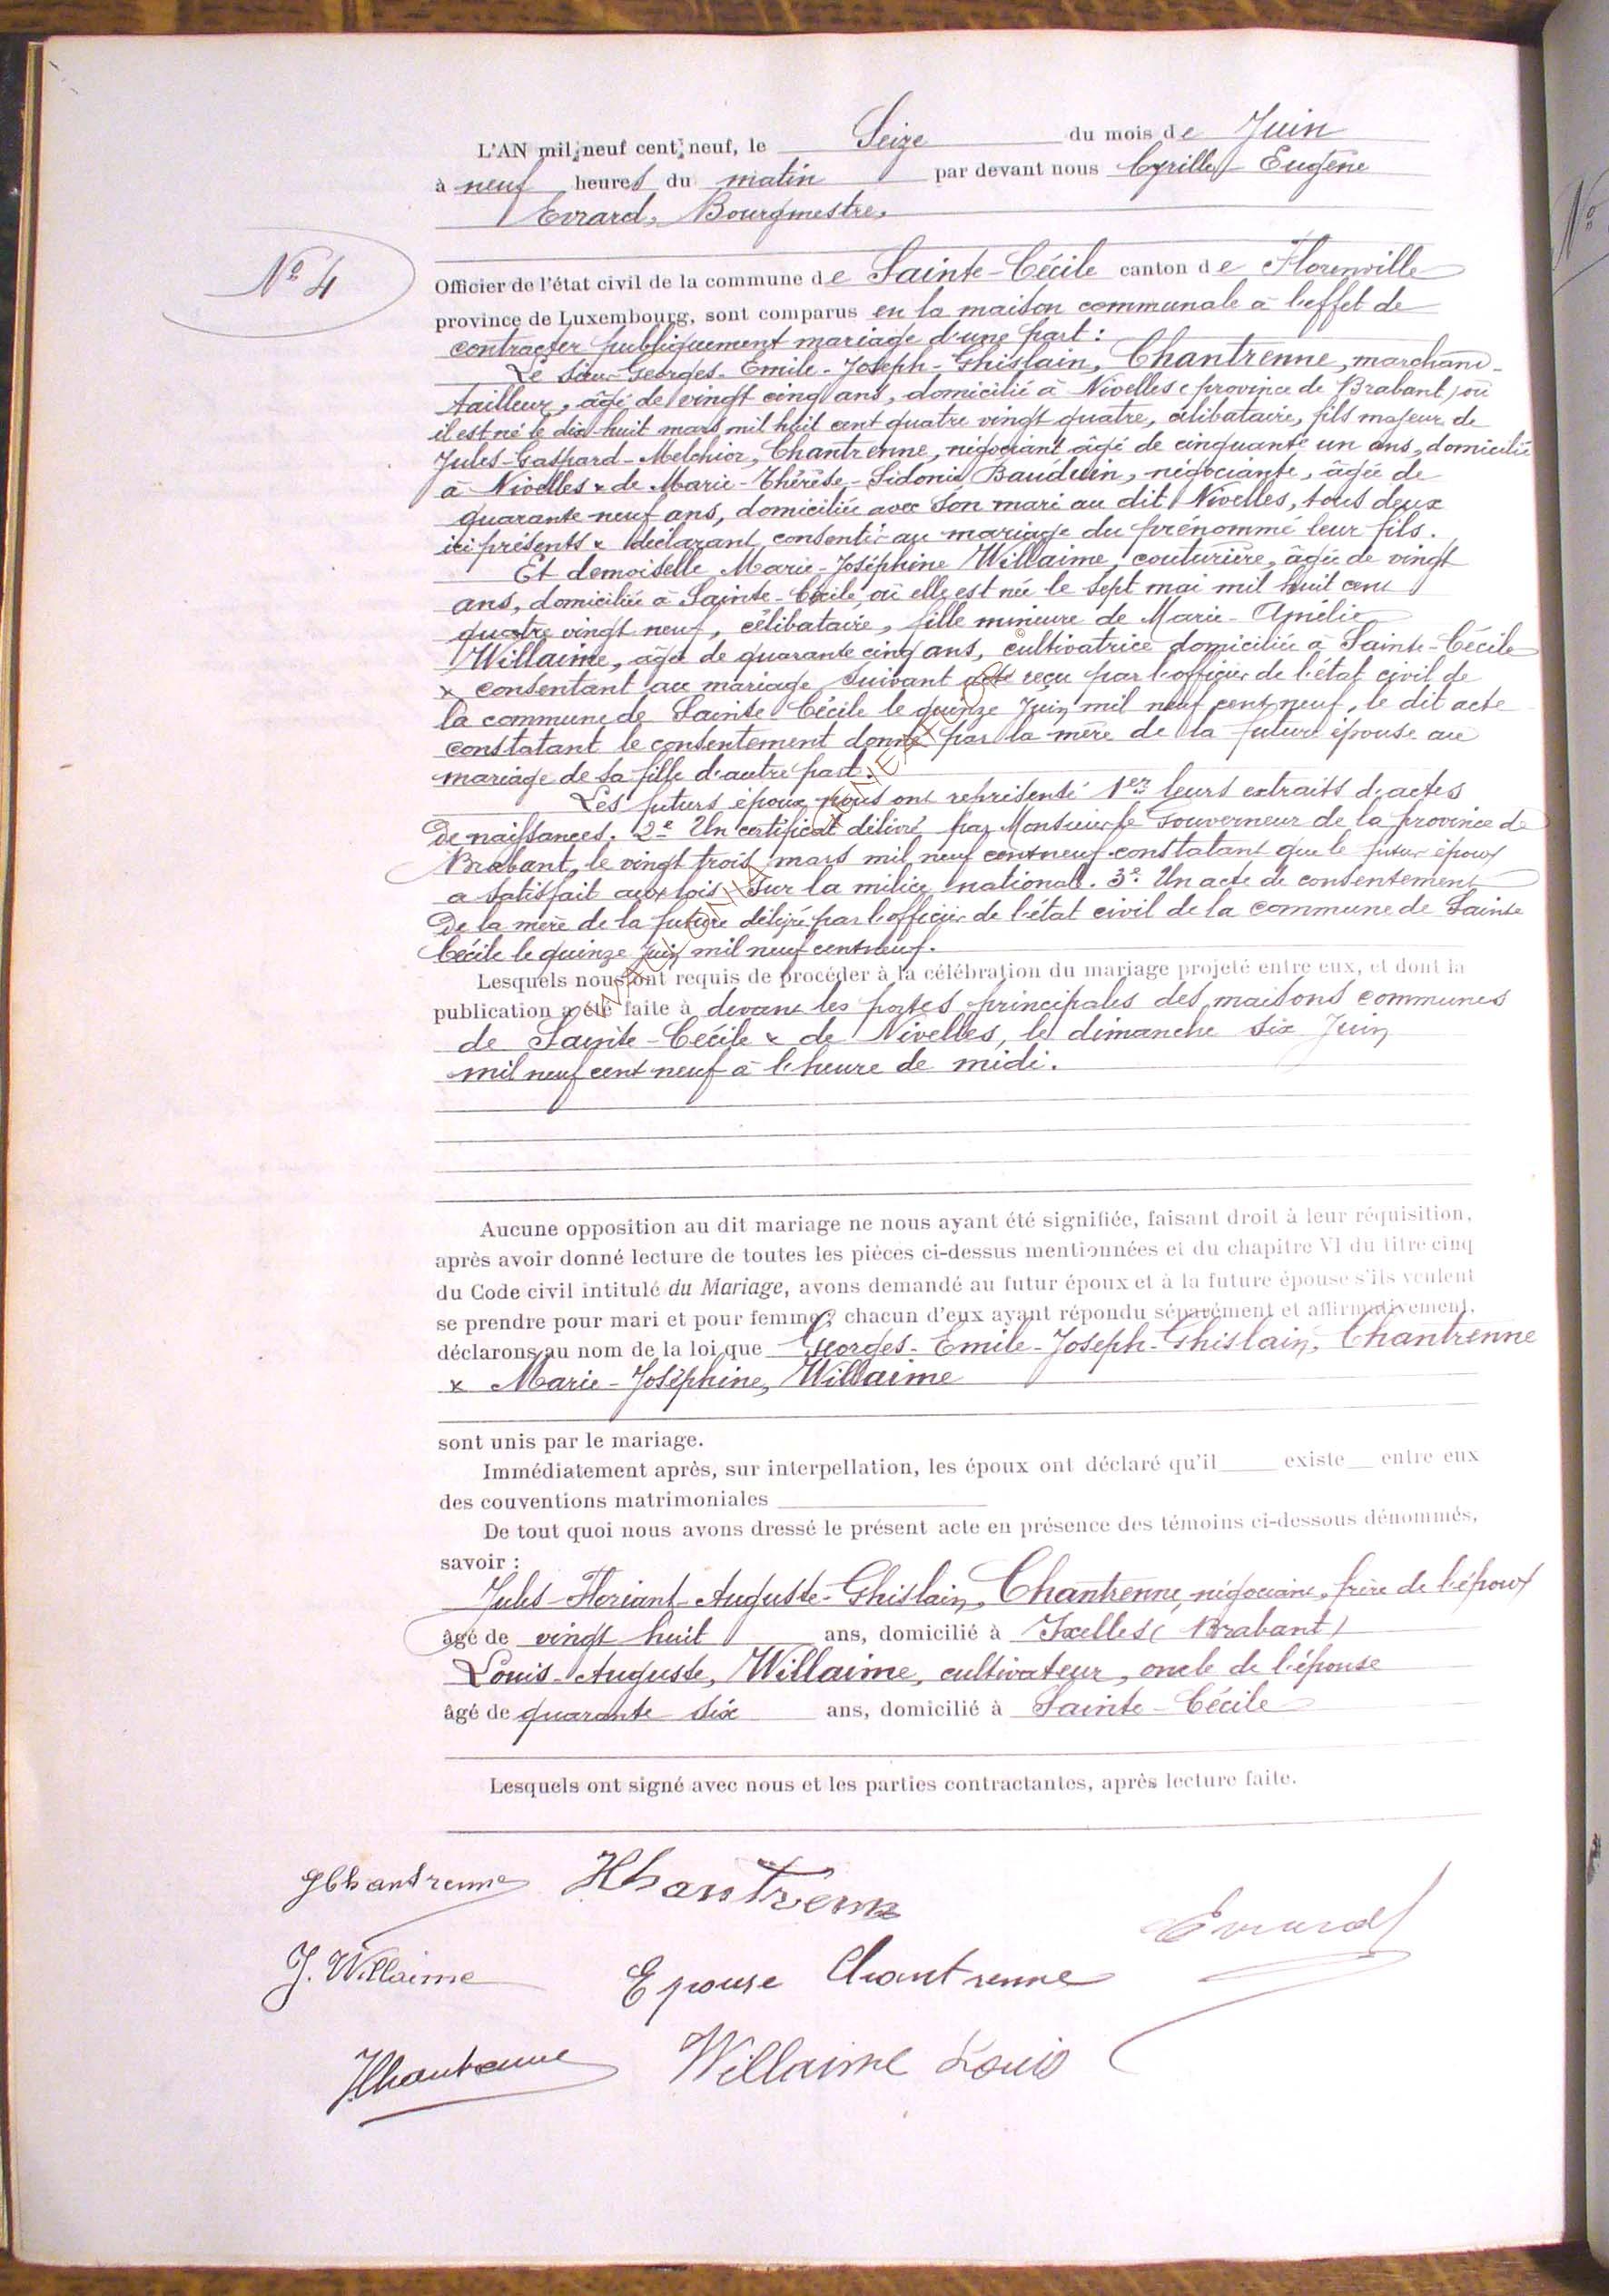 L'AN mil neuf cent neuf, le Seize du mois de Juin
à neuf heures du matin par devant nous Cyrille Eugène
Evrard, Bourgmestre,
N° 4
Officier de l'état civil de la commune de Sainte-Cécile canton de Florenville
province de Luxembourg, sont comparus en la maison communale à l'effet de
contracter publiquement mariage d'une part :
Le sieur Georges-Emile-Joseph-Ghislain, Chantrenne, marchand-
tailleur, âgé de vingt cinq ans, domicilié à Nivelles (province de Brabant) où
il est né le dix-huit mars mil huit cent quatre vingt quatre, célibataire, fils majeur de
Jules-Gaspard-Melchior, Chantrenne, négociant âgé de cinquante un ans, domicilié
à Nivelles & de Marie-Thérèse-Sidonie Bauduin, négociante, âgée de
quarante neuf ans, domiciliée avec son mari au dit Nivelles, tous deux
ici présents & déclarant consentir au mariage du prénommé leur fils.
Et demoiselle Marie-Joséphine Willaime, couturière, âgée de vingt
ans, domiciliée à Sainte-Cécile, où elle est née le sept mai mil huit cent
quatre vingt neuf, célibataire, fille mineure de Marie-Amélie
Willaime, âgée de quarante cinq ans, cultivatrice domiciliée à Sainte-Cécile
& consentant au mariage suivant acte reçu par l'officier de l'état civil de
la commune de Sainte Cécile le quinze Juin mil neuf cent neuf, le dit acte
constatant le consentement donné par la mère de la future épouse au
mariage de sa fille d'autre part.
Les futurs époux nous ont représenté 1er leurs extraits d'actes
De naissances. 2e Un certificat délivré par Monsieur le Gouverneur de la province de
Brabant, le vingt trois mars mil neuf cent neuf constatant que le futur époux
a satisfait aux lois sur la milice nationale. 3e Un acte de consentement
De la mère de la future délivré par l'officier de l'état civil de la commune de Sainte
Cécile le quinze Juin mil neuf cent neuf.
Lesquels nous ont requis de procéder à la célébration du mariage projeté entre eux, et dont la
publication a été faite à devant les portes principales des maisons communes
de Sainte-Cécile & de Nivelles, le dimanche six Juin
mil neuf cent neuf à l'heure de midi.
Aucune opposition au dit mariage ne nous ayant été signifiée, faisant droit à leur réquisition,
après avoir donné lecture de toutes les pièces ci-dessus mentionnées et du chapitre VI du titre cinq
du Code civil intitulé du Mariage, avons demandé au futur époux et à la future épouse s'ils veulent
se prendre pour mari et pour femme ; chacun d'eux ayant répondu séparément et affirmativement,
déclarons au nom de la loi que Georges-Emile-Joseph-Ghislain, Chantrenne
& Marie-Joséphine, Willaime
sont unis par le mariage.
Immédiatement après, sur interpellation, les époux ont déclaré qu'il existe entre eux
des couventions matrimoniales
De tout quoi nous avons dressé le présent acte en présence des témoins ci-dessous dénommés,
savoir :
Jules-Floriant-Auguste-Ghislain, Chantrenne, négociant, frère de l'époux
âgé de vingt huit ans, domicilié à Ixelles (Brabant)
Louis-Auguste, Willaime, cultivateur, oncle de l'épouse
âgé de quarante six ans, domicilié à Sainte-Cécile
Lesquels ont signé avec nous et les parties contractantes, après lecture faite.
GChantrenne JChantrenne
Evrard
J. Willaime Epouse Chantrenne
JChantrenne Willaime Louis